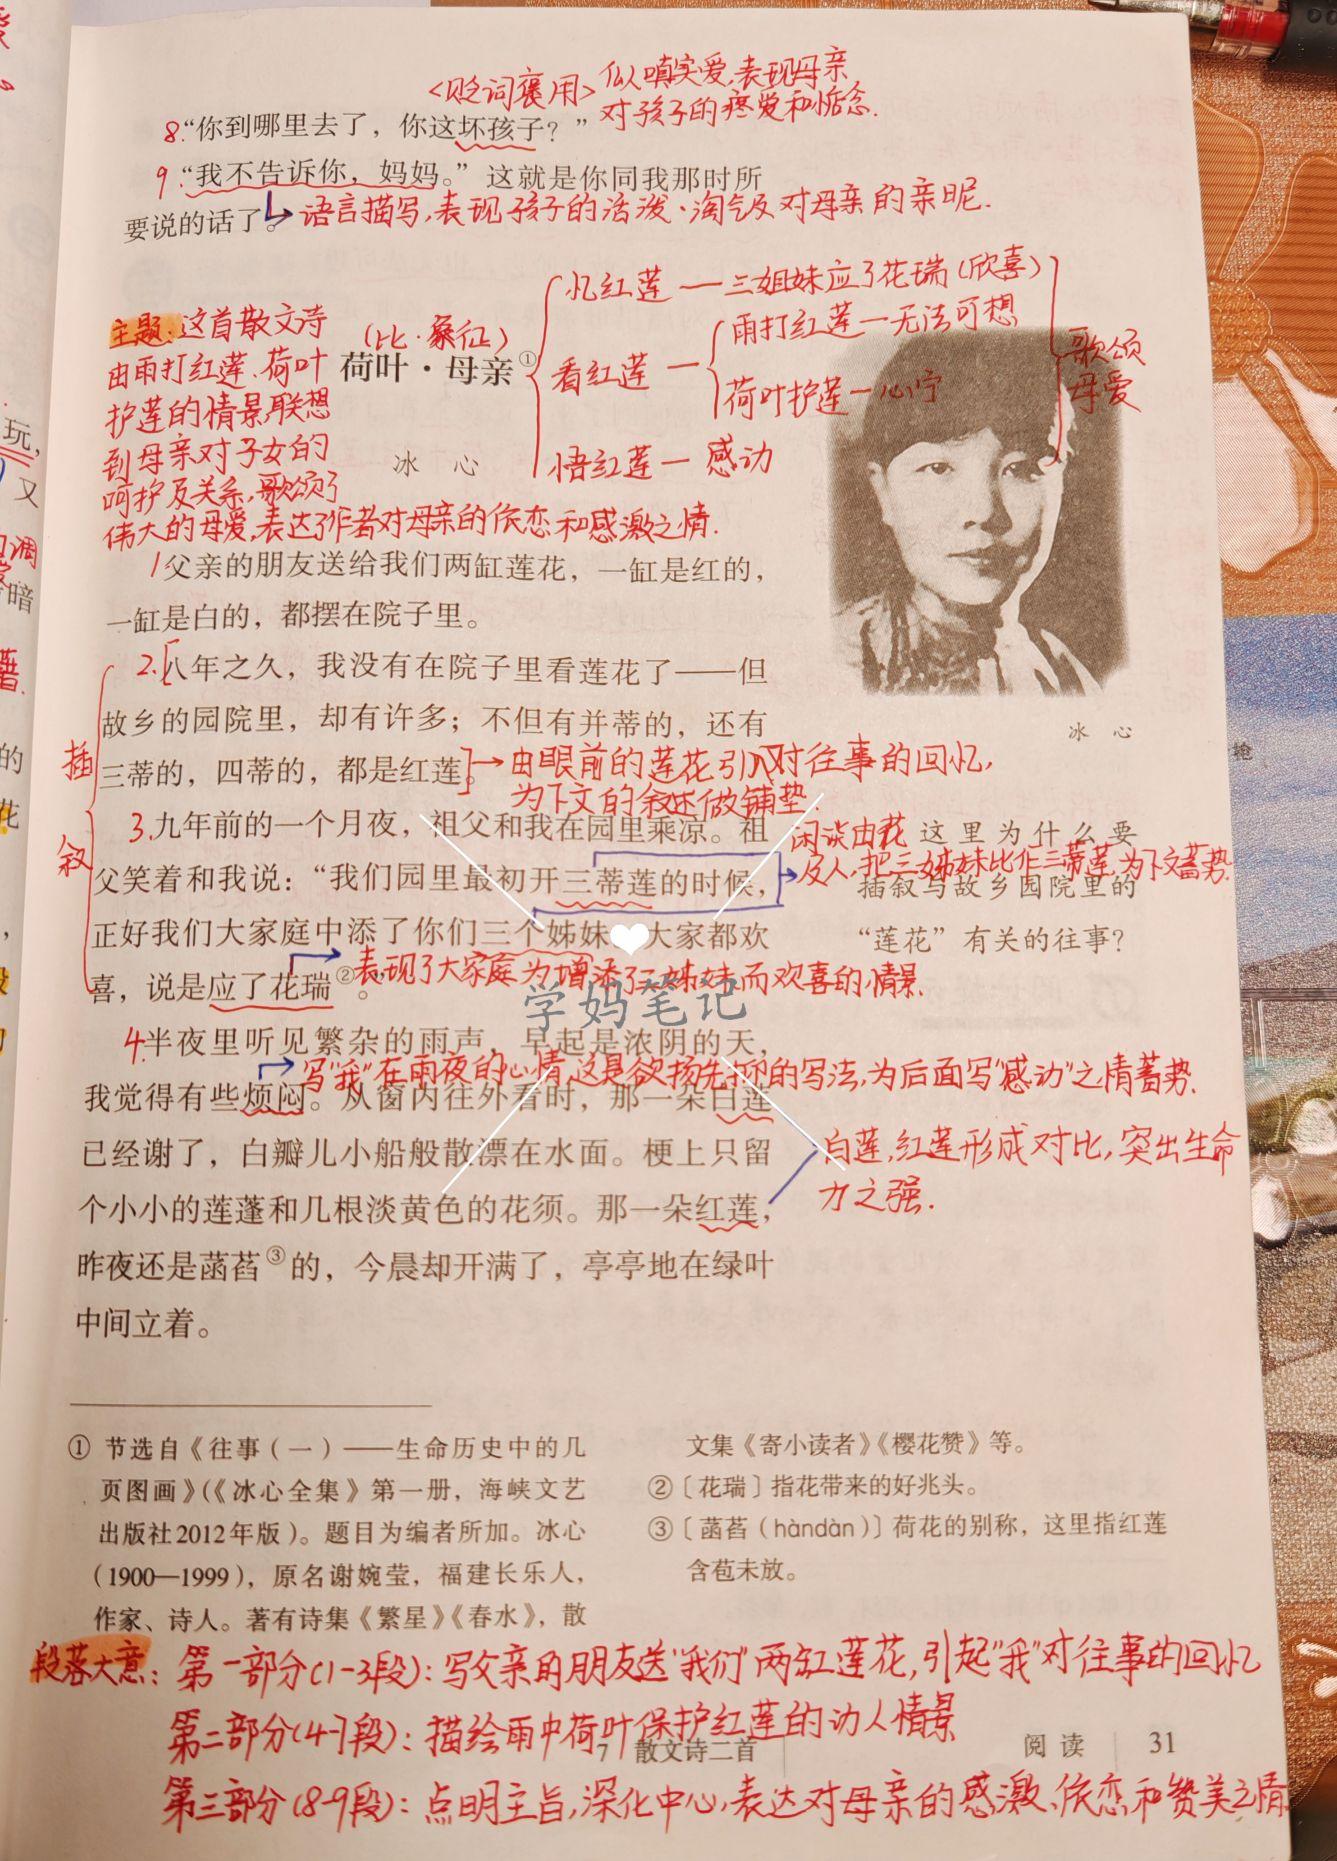 <贬词褒用>似嗔实爱,表现母亲
对孩子的疼爱和惦念.
8.“你到哪里去了，你这坏孩子？”
9.“我不告诉你，妈妈。”这就是你同我那时所
要说的话了。
语言描写,表现孩子的活泼·淘气及对母亲的亲昵.
主题:这首散文诗
由雨打红莲、荷叶
护莲的情景,联想
到母亲对子女的
呵护及关系,歌颂了
伟大的母爱,表达了作者对母亲的依恋和感激之情.
(比·象征)
荷叶·母亲①
冰 心
忆红莲—三姐妹应了花瑞(欣喜)
看红莲—
雨打红莲—无法可想
荷叶护莲—心宁
悟红莲—感动
歌颂
母爱
冰 心
1父亲的朋友送给我们两缸莲花，一缸是红的，
一缸是白的，都摆在院子里。
2.八年之久，我没有在院子里看莲花了——但
故乡的园院里，却有许多；不但有并蒂的，还有
三蒂的，四蒂的，都是红莲。
→由眼前的莲花引入对往事的回忆,
为下文的叙述做铺垫.
插
叙
3.九年前的一个月夜，祖父和我在园里乘凉。祖
父笑着和我说：“我们园里最初开三蒂莲的时候，
正好我们大家庭中添了你们三个姊妹 大家都欢
喜，说是应了花瑞②。”
闲谈由花
及人,把三姊妹比作三蒂莲,为下文蓄势.
这里为什么要
插叙与故乡园院里的
“莲花”有关的往事？
表现了大家庭为增添了三姊妹而欢喜的情景.
学妈笔记
4.半夜里听见繁杂的雨声，早起是浓阴的天，
我觉得有些烦闷。从窗内往外看时，那一朵白莲
已经谢了，白瓣儿小船般散漂在水面。梗上只留
个小小的莲蓬和几根淡黄色的花须。那一朵红莲，
昨夜还是菡萏③的，今晨却开满了，亭亭地在绿叶
中间立着。
写“我”在雨夜的心情,这是欲扬先抑的写法,为后面写“感动”之情蓄势.
白莲,红莲形成对比,突出生命
力之强.
① 节选自《往事（一）——生命历史中的几
页图画》（《冰心全集》第一册，海峡文艺
出版社2012年版）。题目为编者所加。冰心
（1900—1999），原名谢婉莹，福建长乐人，
作家、诗人。著有诗集《繁星》《春水》，散
文集《寄小读者》《樱花赞》等。
②〔花瑞〕指花带来的好兆头。
③〔菡萏（hàndàn）〕荷花的别称，这里指红莲
含苞未放。
段落大意:第一部分(1-3段):写父亲的朋友送“我们”两缸莲花,引起“我”对往事的回忆
第二部分(4-7段):描绘雨中荷叶保护红莲的动人情景
7 散文诗二首
阅读 31
第三部分(8-9段):点明主旨,深化中心,表达对母亲的感激、依恋和赞美之情.